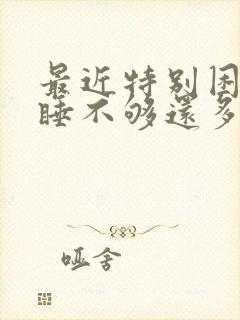 最近特别困
睡不够还多
哑舍